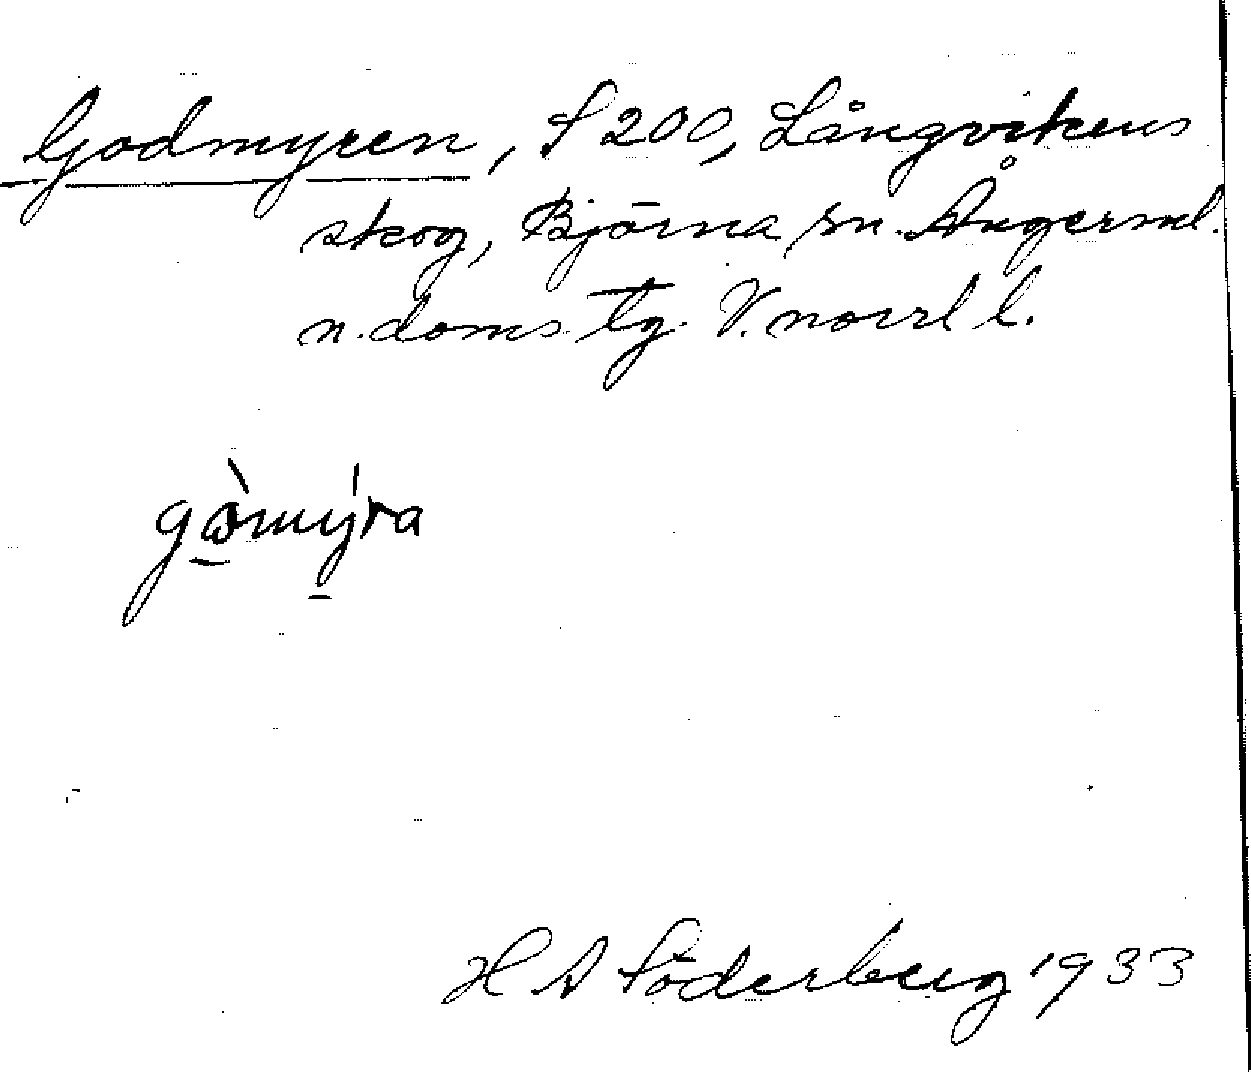 Godmyren, S 200, Långvikens
skog, Björna sn. Ångerml.
n. doms. tg. V. norrl l.
gɷ̀mýra
H A Söderberg 1933